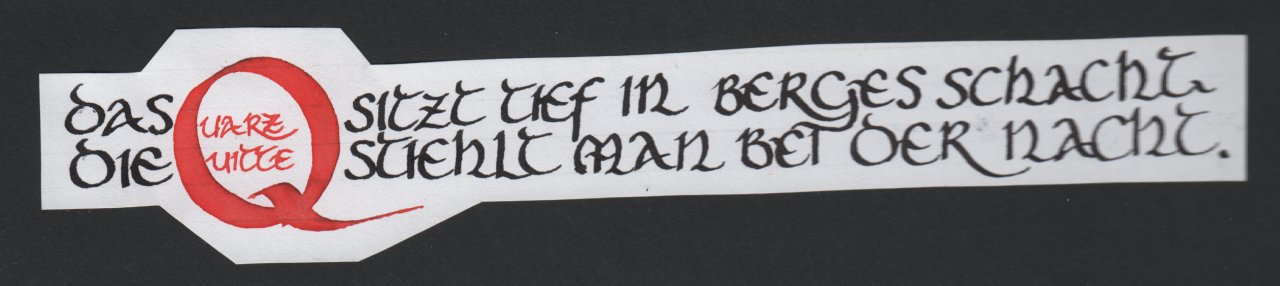 DAS QUARZ SITZT TIEF IN BERGES SCHACHT,
DIE QUITTE STIEHLT MAN BEI DER NACHT.